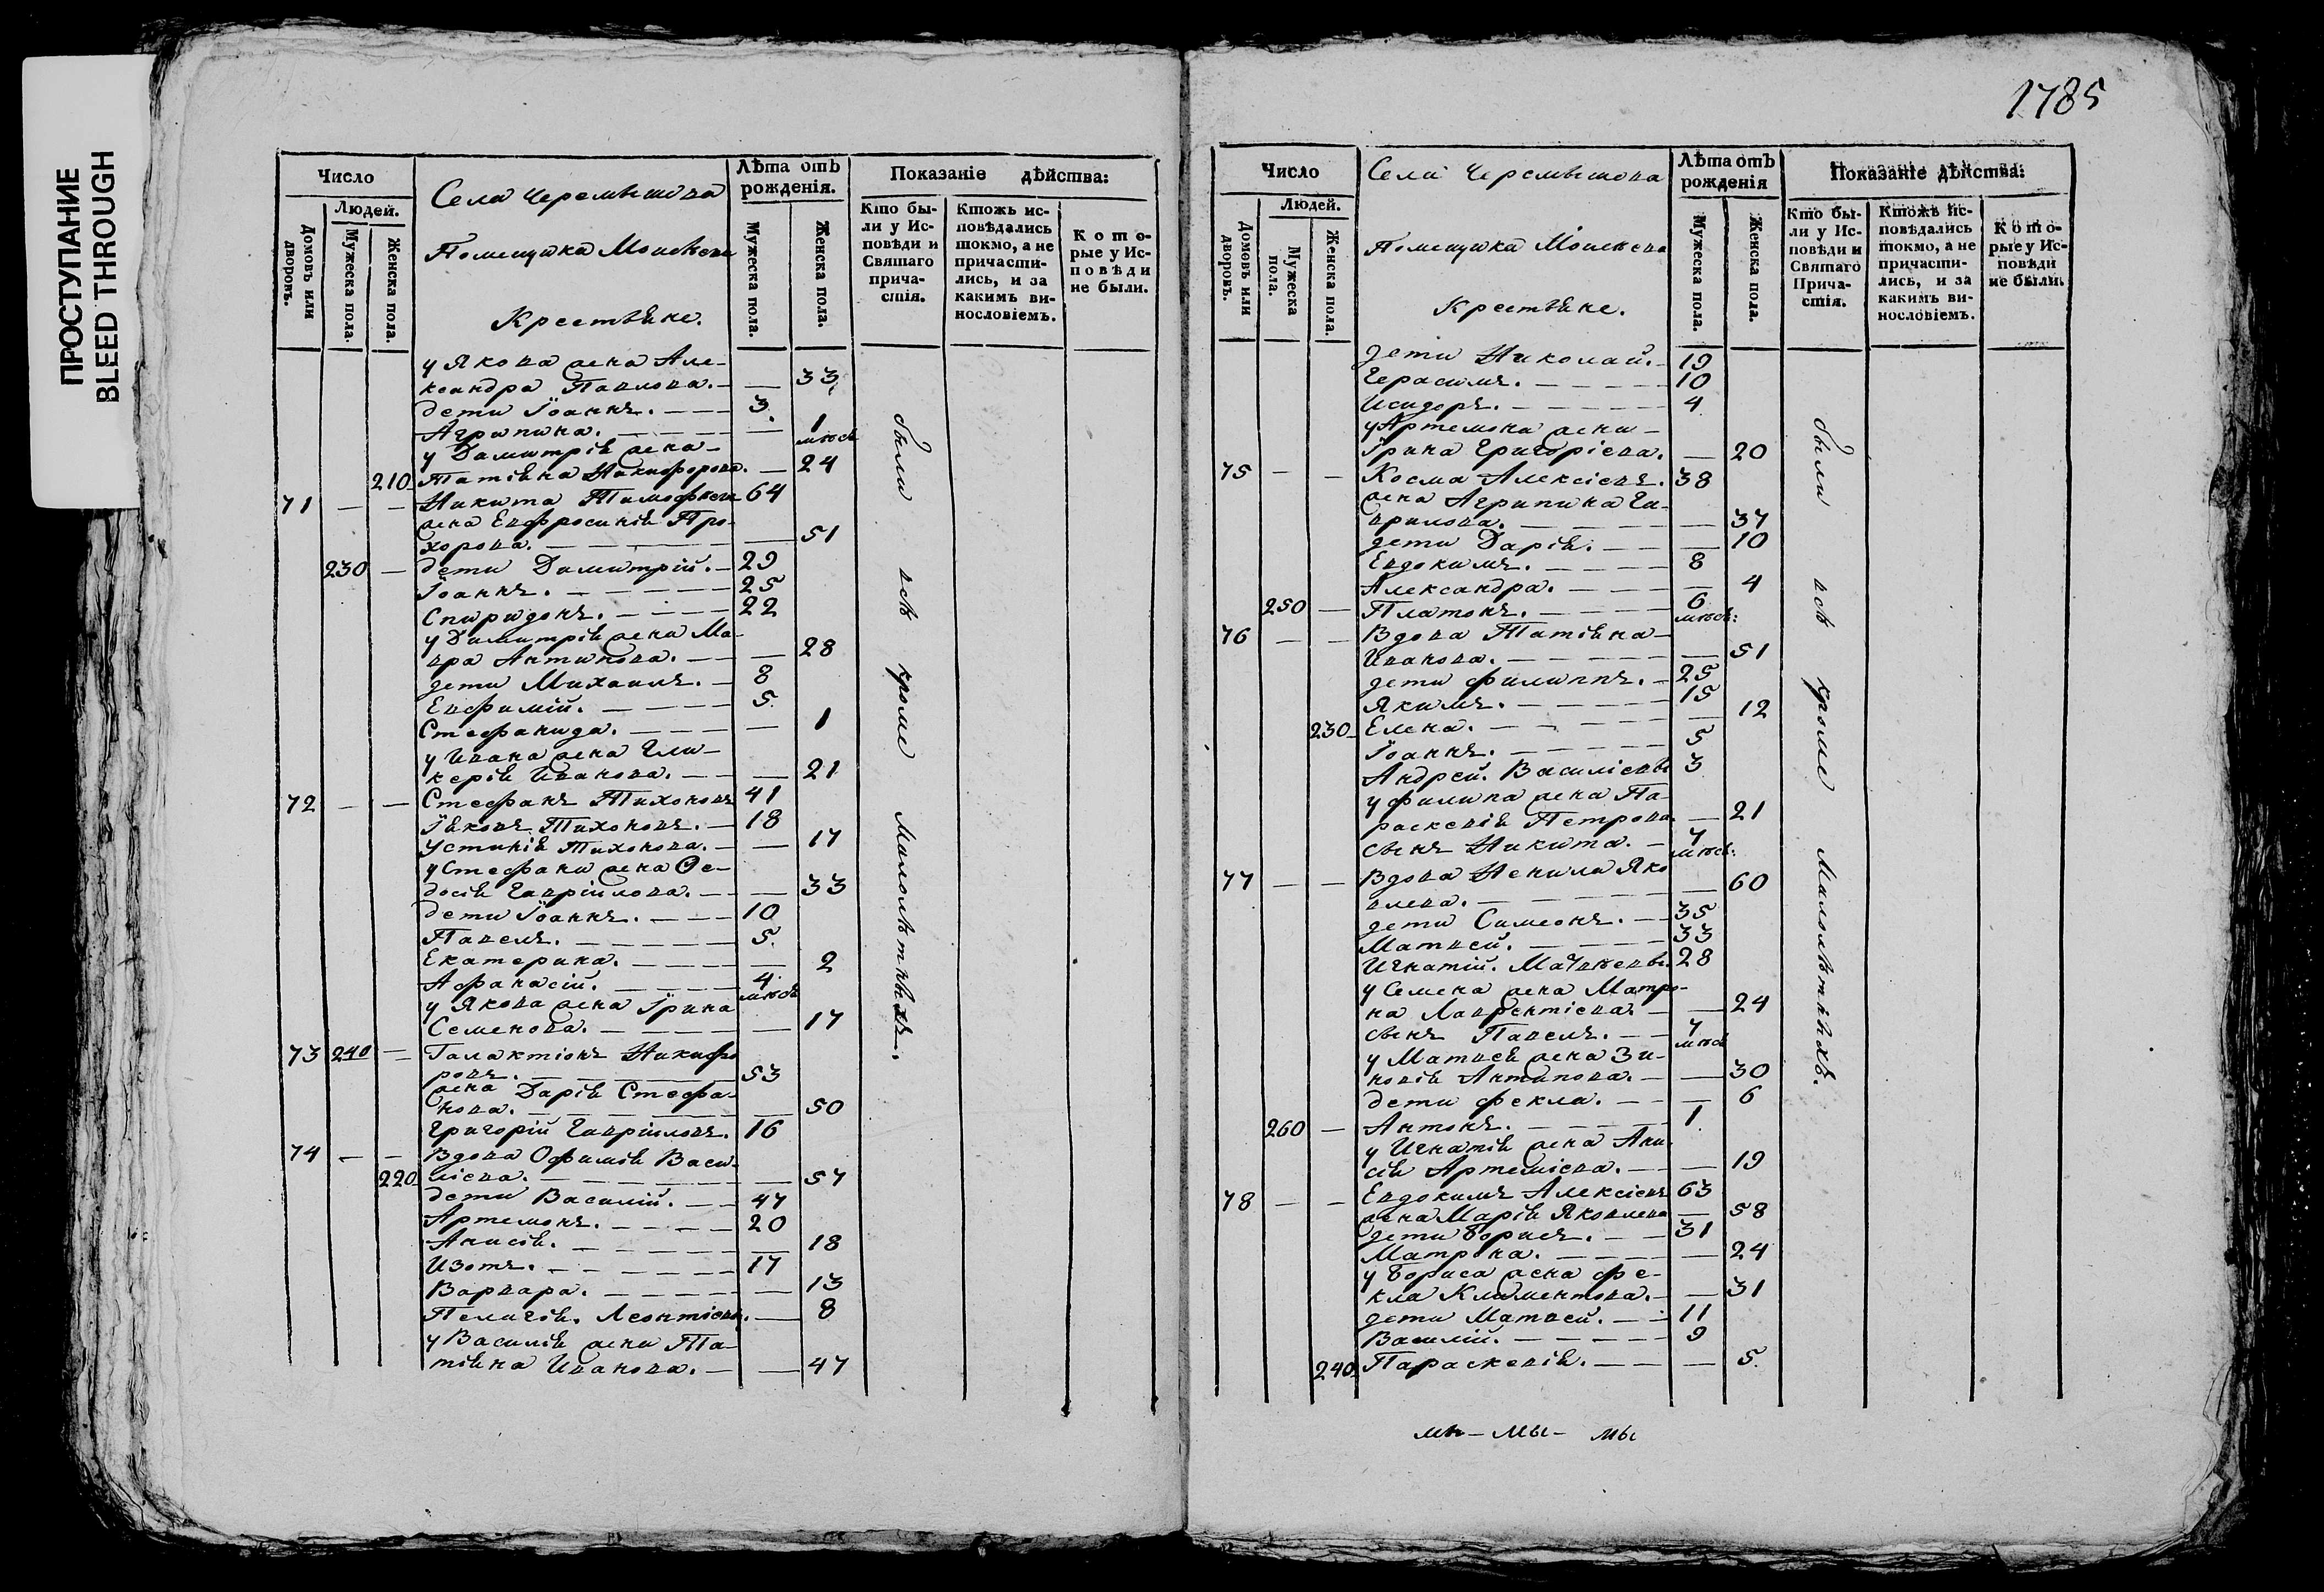 ПРОСТУПАНИЕ
BLEED THROUGH
Число
Людей.
Домовъ или дворовъ.
Мужеска пола.
Женска пола.
Села Черемышова
Помещика
Крестьяне.
Лѣта отъ рожденія.
Мужеска пола.
Женска пола.
Показаніе дѣйства:
Кто бы-
ли у Ис-
повѣди и
Святаго
прича-
стія.
Ктожъ ис-
повѣдались
токмо, а не
причасти-
лись, и за
какимъ ви-
нословіемъ.
Кото-
рые у Ис-
повѣди
не были.
у Якова жена Але-
ксандра Павлова. — 33
дети Іоаннъ. 3
Агрипина. — 1 мѣся
у Димитрія жена
210 Татіяна Никифорова. — 24
71 — — Никита Тимофеевъ 64
жена Евфросинія Про-
хорова. — 51
230 — дети Димитрій. 29
Іоаннъ. 25
Спиридонъ. 22
у Димитрія жена Ма-
вра Антипова. — 28
дети Михаилъ. 8
Евфимій. 5
Стефанида. — 1
у Ивана жена Гли-
керія Иванова. — 21
72 — — Стефанъ Тихоновъ 41
Іяковъ Тихоновъ. 18
Устинія Тихонова. — 17
у Стефана жена Ѳе-
досія Гавріилова. — 33
дети Іоаннъ. 10
Павелъ. 5
Екатерина. — 2
Афанасій. 4 мѣся
у Якова жена Ірина
Семенова. — 17
73 240 — Галактіонъ Никифо
ровъ. 53
жена Дарія Стефа-
нова. — 50
Григорій Гавріиловъ. 16
74 — — Вдова Офимія Васи-
220 ліева. — 57
дети Василій. 47
Артемонъ. 20
Анисія. — 18
Изотъ. 17
Варвара. — 13
Пелагія. Леонтіевы. — 8
у Василія жена Та-
тіяна Иванова. — 47
были всѣ кроме малолѣтныхъ.
1785
Число
Людей.
Домовъ или дворовъ.
Мужеска пола.
Женска пола.
Села Черемышова
Помещика
Крестьяне.
Лѣта отъ рожденія
Мужеска пола.
Женска пола.
Показаніе дѣйства:
Кто бы-
ли у Ис-
повѣди и
Святаго
Прича-
стія.
Ктожъ ис-
повѣдались
токмо, а не
причасти-
лись, и за
какимъ ви-
нословіемъ.
Кото-
рые у Ис-
повѣди
не были.
дети Николай. 19
Герасимъ. 10
Исидоръ. 4
у Артемона жена
Ірина Григоріева. — 20
75 — — Косма Алексіевъ. 38
жена Агрипина Га-
врилова. — 37
дети Дарія. — 10
Евдокимъ. 8
Александра. — 4
250 — Платонъ. 6 мѣся:
76 — — Вдова Татіяна
Иванова. — 51
дети Филиппъ. 25
Якимъ. 15
230 Елена. — 12
Іоаннъ. 5
Андрей. Василіевы 3
у Филипа жена Па-
раскевія Петрова. — 21
сынъ Никита. 7 мѣся:
77 — — Вдова Ненила Яко
влева. — 60
дети Симеонъ. 35
Матвей. 33
Игнатій. Матвѣевы. 28
у Семена жена Матро-
на Лаврентіева. — 24
сынъ Павелъ. 7 мѣся
у Матвея жена Зи-
новія Антипова. — 30
дети Фекла. — 6
260 — Антонъ. 1
у Игнатія жена Ани
сія Артеміева. — 19
78 — — Евдокимъ Алексіевъ 63
жена Марія Яковлева — 58
дети Борисъ. 31
Матрона. — 24
у Бориса жена Фе-
кла Климентова. — 31
дети Матвей. 11
Василій. 9
240 Параскевія. — 5
были всѣ кроме малолѣтныхъ.
мы — мы — мы